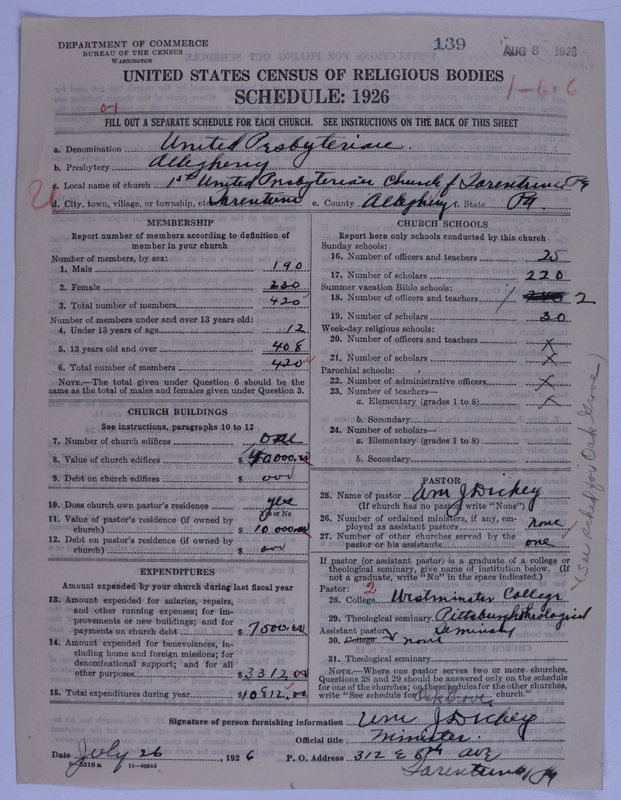 DEPARTMENT OF COMMERCE
BUREAU OF THE CENSUS
WASHINGTON
139
AUG 8 1926
UNITED STATES CENSUS OF RELIGIOUS BODIES
SCHEDULE: 1926
1-6+6
0-1
FILL OUT A SEPARATE SCHEDULE FOR EACH CHURCH. SEE INSTRUCTIONS ON THE BACK OF THIS SHEET
a. Denomination United Presbyterian.
b. Presbytery Allegheny
c. Local name of church 1st United Presbyterian Church of Tarentum Pa
d. City, town, village, or township, etc. Tarentum e. County Allegheny f. State Pa.
MEMBERSHIP
Report number of members according to definition of
member in your church
Number of members, by sex:
1. Male 190
2. Female 230
3. Total number of members 420
Number of members under and over 13 years old:
4. Under 13 years of age 12
5. 13 years old and over 408
6. Total number of members 420
NOTE.—The total given under Question 6 should be the
same as the total of males and females given under Question 3.
CHURCH BUILDINGS
See instructions, paragraphs 10 to 12
7. Number of church edifices one
8. Value of church edifices $ 40000.00
9. Debt on church edifices $ 000
10. Does church own pastor's residence? yes
Yes or No
11. Value of pastor's residence (if owned by
church) $ 10000.00
12. Debt on pastor's residence (if owned by
church) $ 000
EXPENDITURES
Amount expended by your church during last fiscal year
13. Amount expended for salaries, repairs,
and other running expenses; for im-
provements or new buildings; and for
payments on church debt $ 7500.00
14. Amount expended for benevolences, in-
cluding home and foreign missions; for
denominational support; and for all
other purposes $ 3312.00
15. Total expenditures during year $ 10812.00
CHURCH SCHOOLS
Report here only schools conducted by this church
Sunday schools:
16. Number of officers and teachers 25
17. Number of scholars 220
Summer vacation Bible schools:
18. Number of officers and teachers 2
19. Number of scholars 30
Week-day religious schools:
20. Number of officers and teachers x
21. Number of scholars x
Parochial schools:
22. Number of administrative officers x
23. Number of teachers—
a. Elementary (grades 1 to 8) x
b. Secondary
24. Number of scholars—
a. Elementary (grades 1 to 8)
b. Secondary
PASTOR
25. Name of pastor Wm J Dickey
(If church has no pastor, write "None")
26. Number of ordained ministers, if any, em-
ployed as assistant pastors none
27. Number of other churches served by the
pastor or his assistants one
If pastor (or assistant pastor) is a graduate of a college or
theological seminary, give name of institution below. (If
not a graduate, write "No" in the space indicated.)
Pastor: 2
28. College Westminster College
29. Theological seminary Pittsburgh Theological
Seminary
Assistant pastor:
30. College none
31. Theological seminary
NOTE.—Where one pastor serves two or more churches,
Questions 28 and 29 should be answered only on the schedule
for one of the churches; on the schedules for the other churches,
write "See schedule for Oak Grove church."
(See sched for Oak Grove)
Signature of person furnishing information Wm J Dickey
Official title Minister
Date July 26, 1926 P. O. Address 312 E 8th ave
Tarentum, Pa
11—9054d